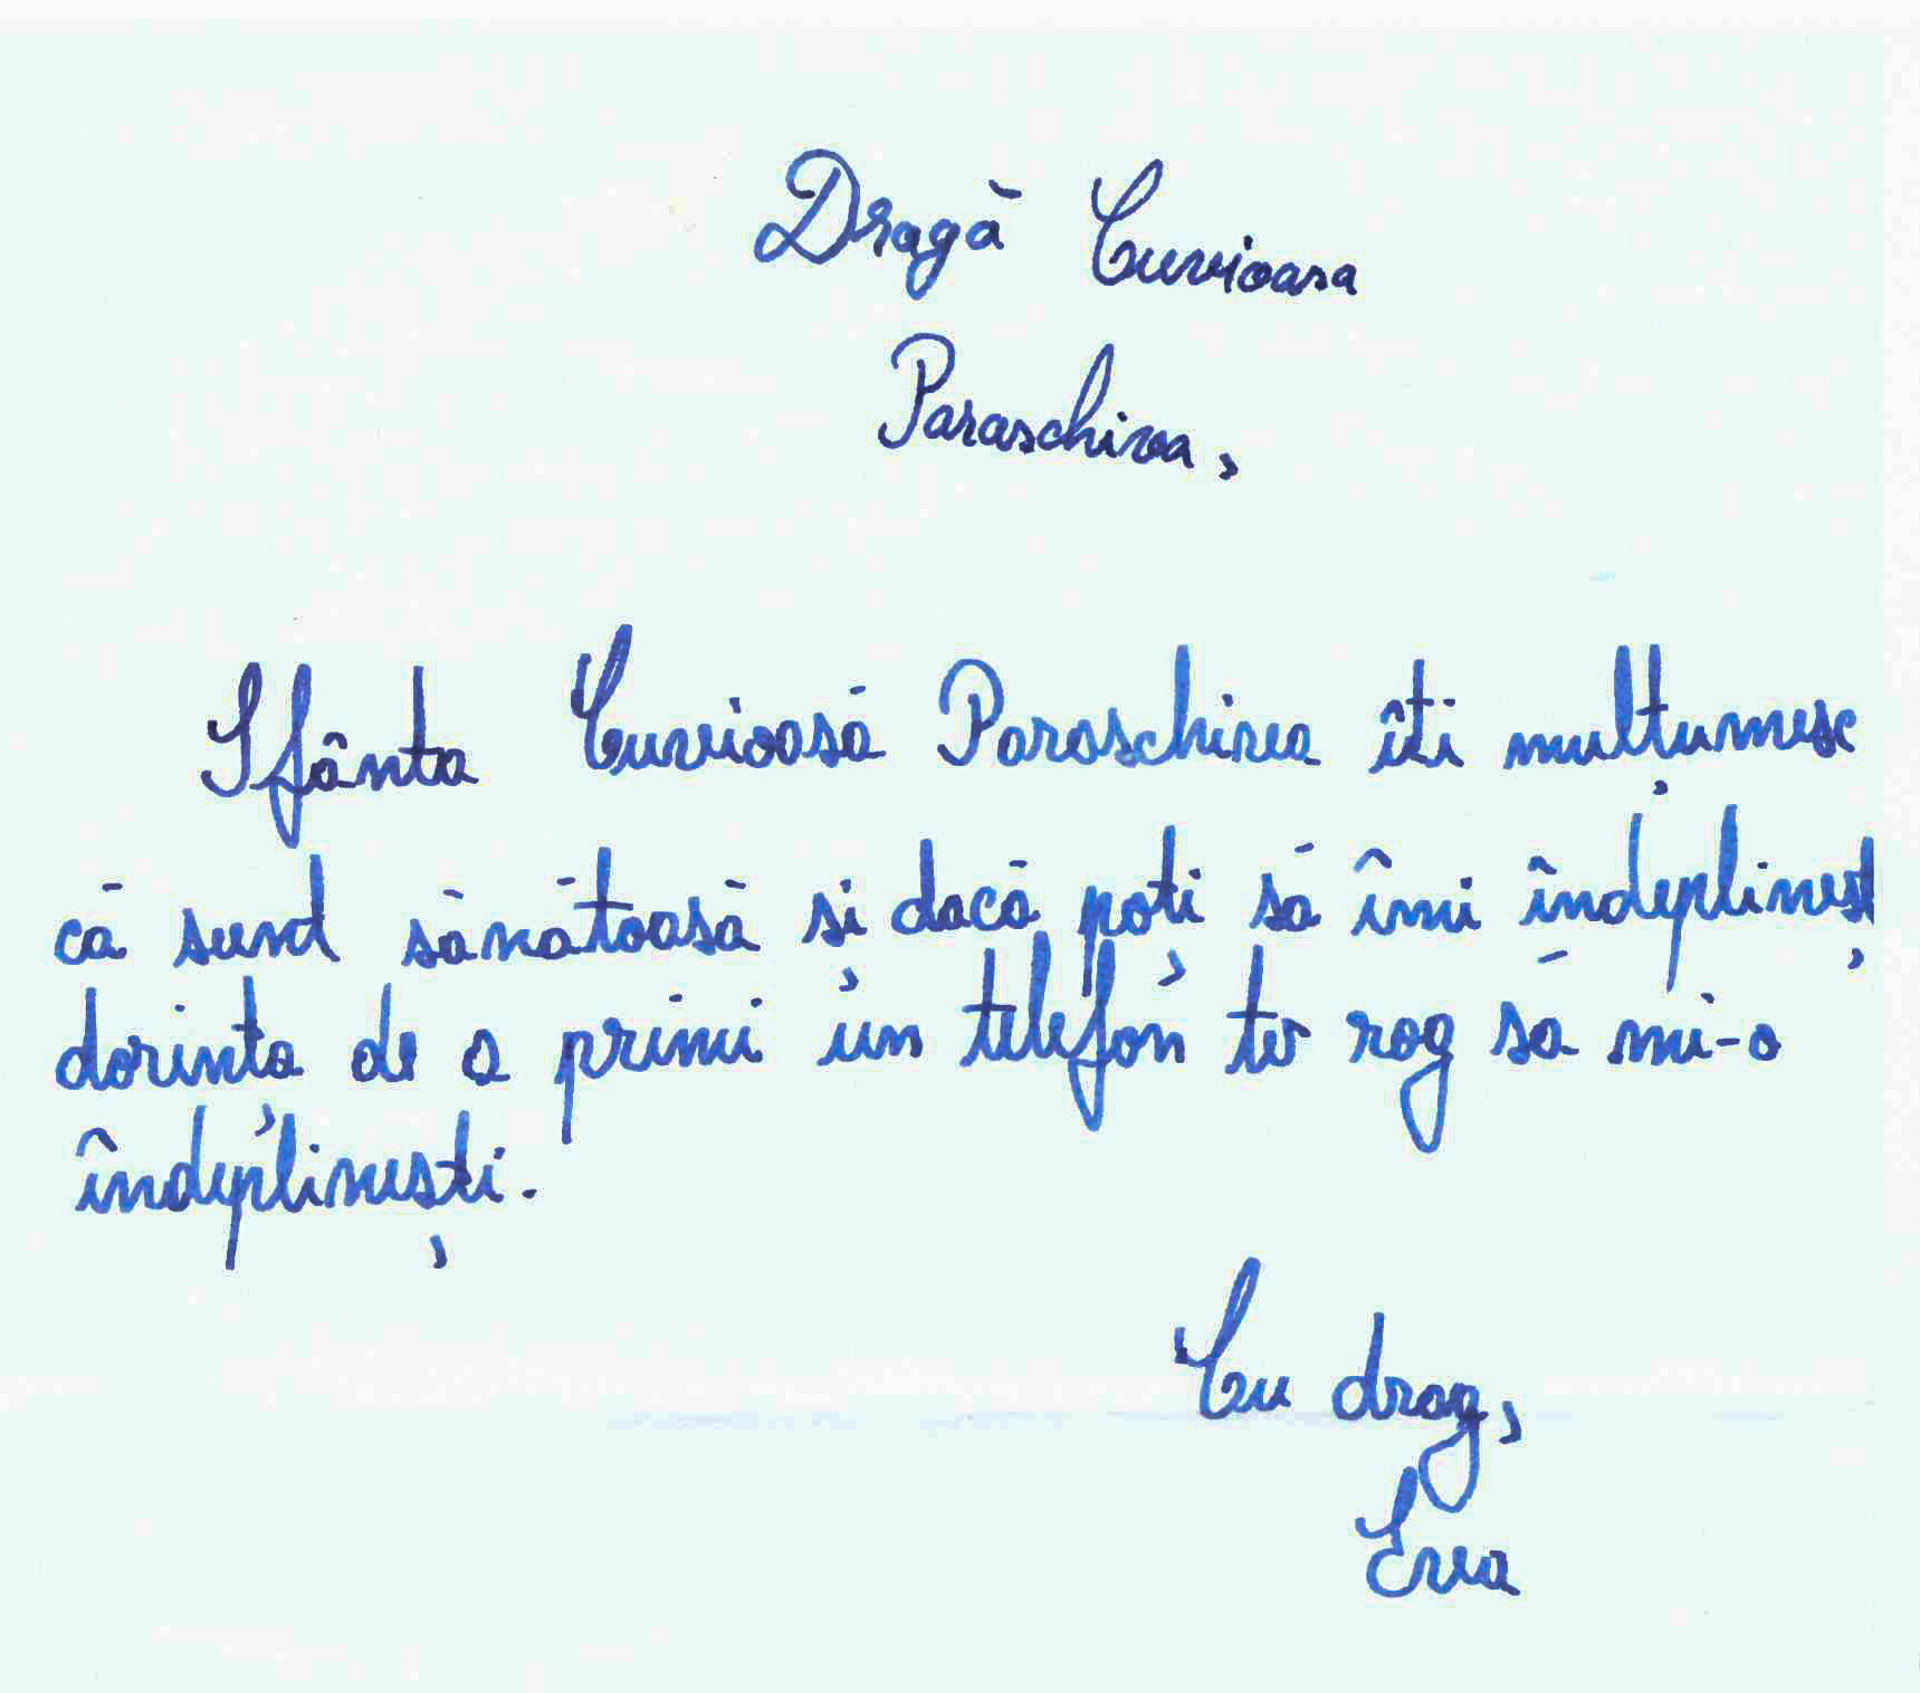 Dragă Cuvioasa
Paraschiva,
Sfânta Cuvioasă Paraschiva îti mulțumesc
că sunt sănătoasă și dacă poți să îmi îndeplineșt
dorința de a primi un telefon te rog să mi-o
îndeplinești.
Cu drag,
Eva